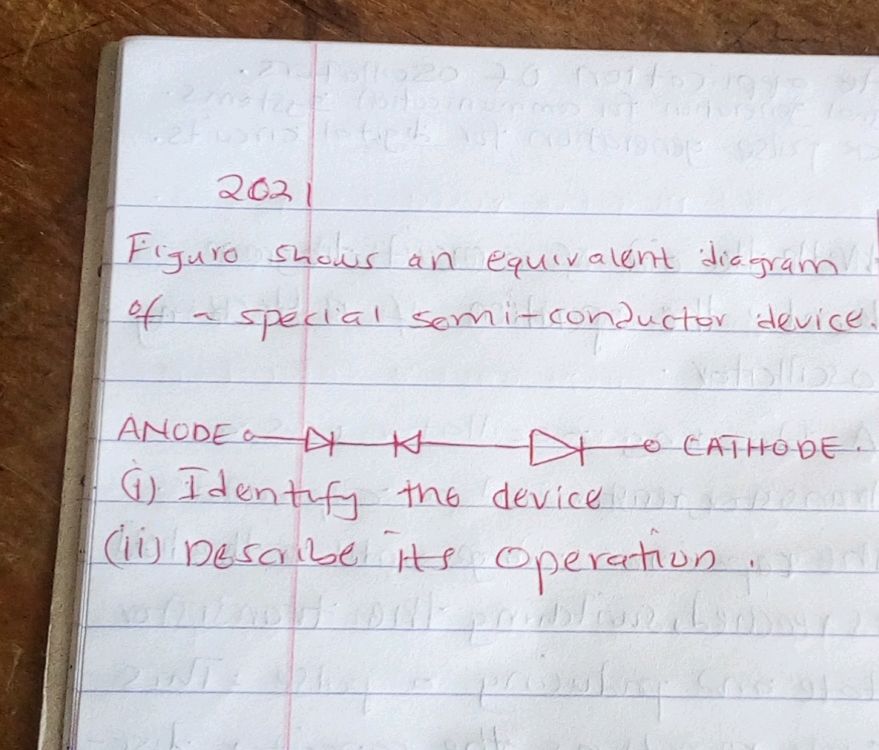 2021
Figure shows an equivalent diagram
of a special semi-conductor device.
ANODE CATHODE.
(i) Identify the device
(ii) Describe its operation.